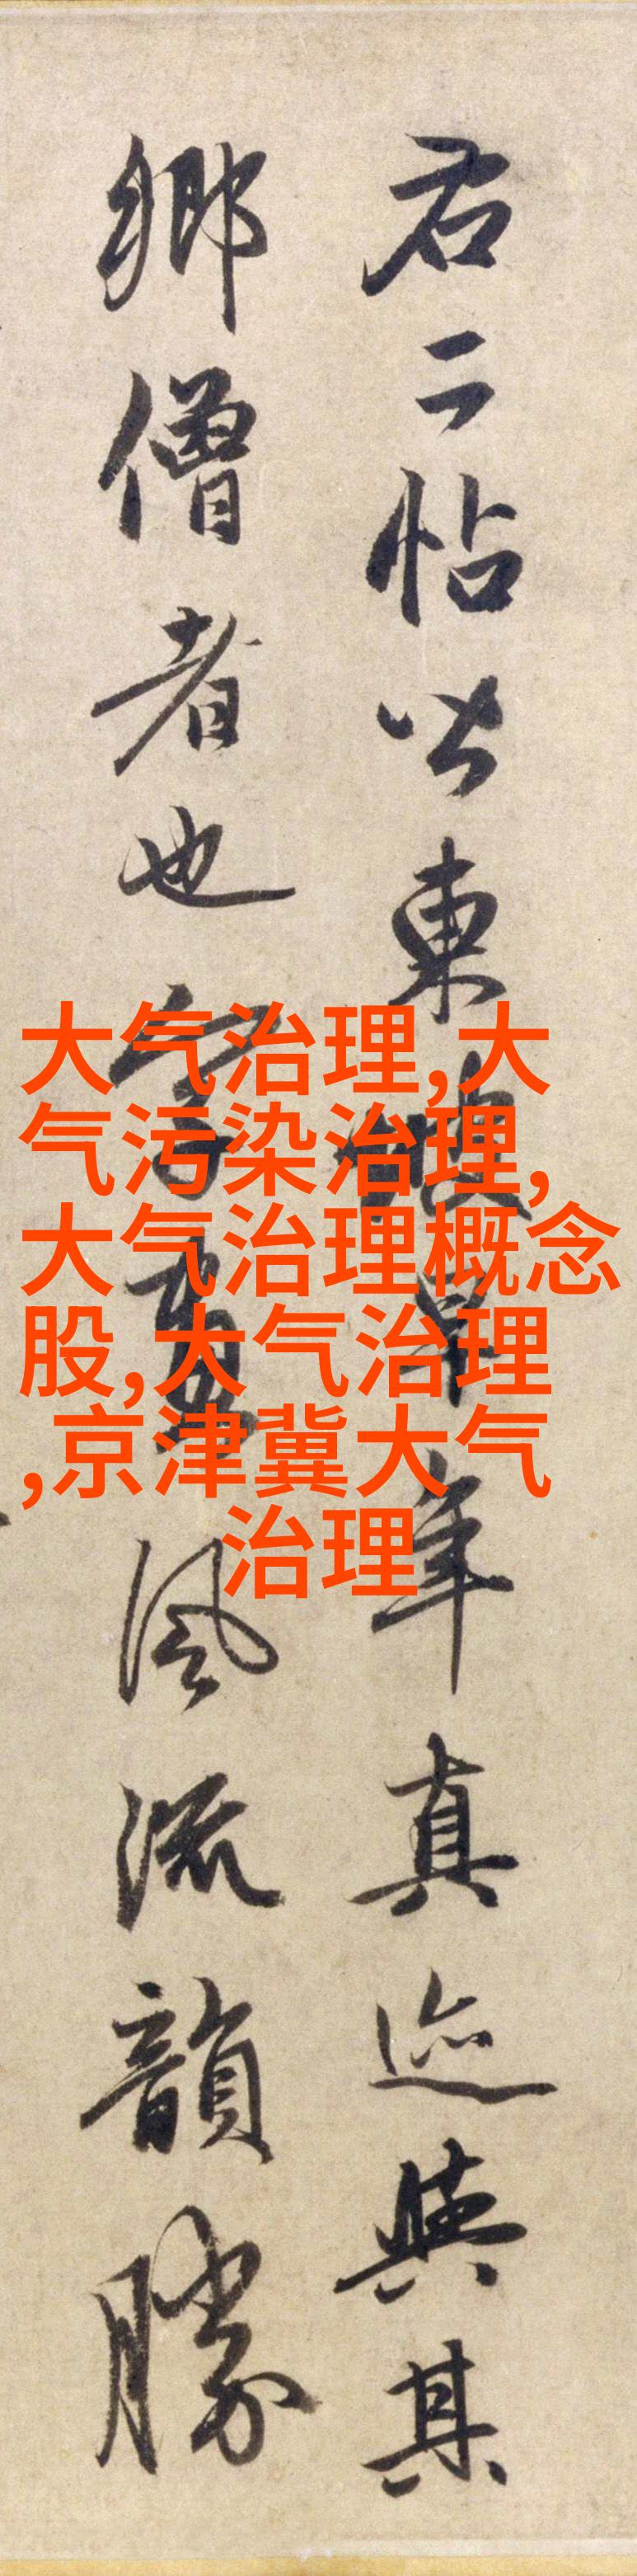 右二帖皆東早年真迹與其
鄉僧者也字畫風流韻勝
大气治理,大
气污染治理,
大气治理概念
股,大气治理
,京津冀大气
治理